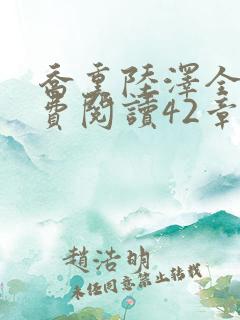 喬重陸澤全
費閱讀42章
趙浩明
未經同意禁止轉載